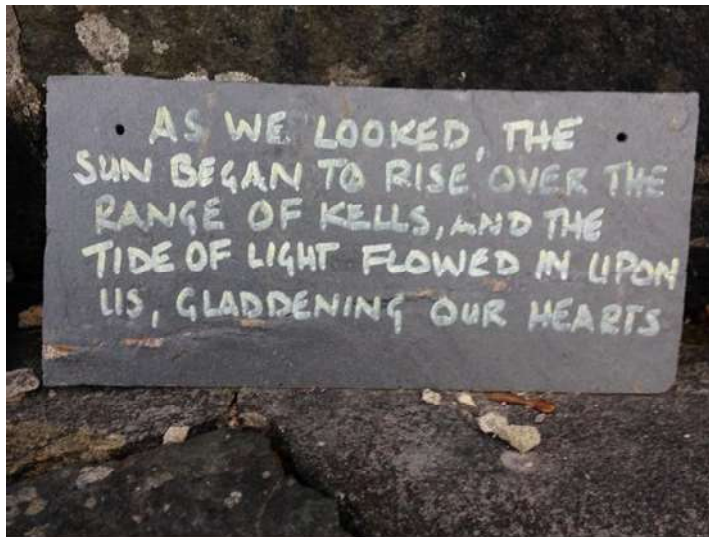 AS WE LOOKED, THE
SUN BEGAN TO RISE OVER THE
RANGE OF KELLS, AND THE
TIDE OF LIGHT FLOWED IN UPON
US, GLADDENING OUR HEARTS